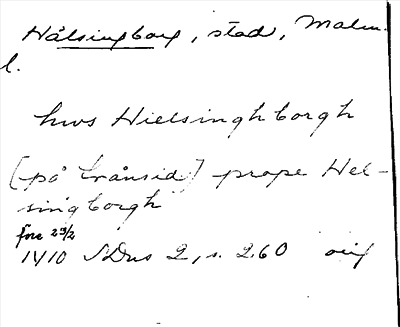 Hälsingborg, stad, Malm.
l.
hws Hielsinghborgh
(på tvänsid) prope Hel-
singborgh
före 23/2
1410 SDns 2, s. 260 orig